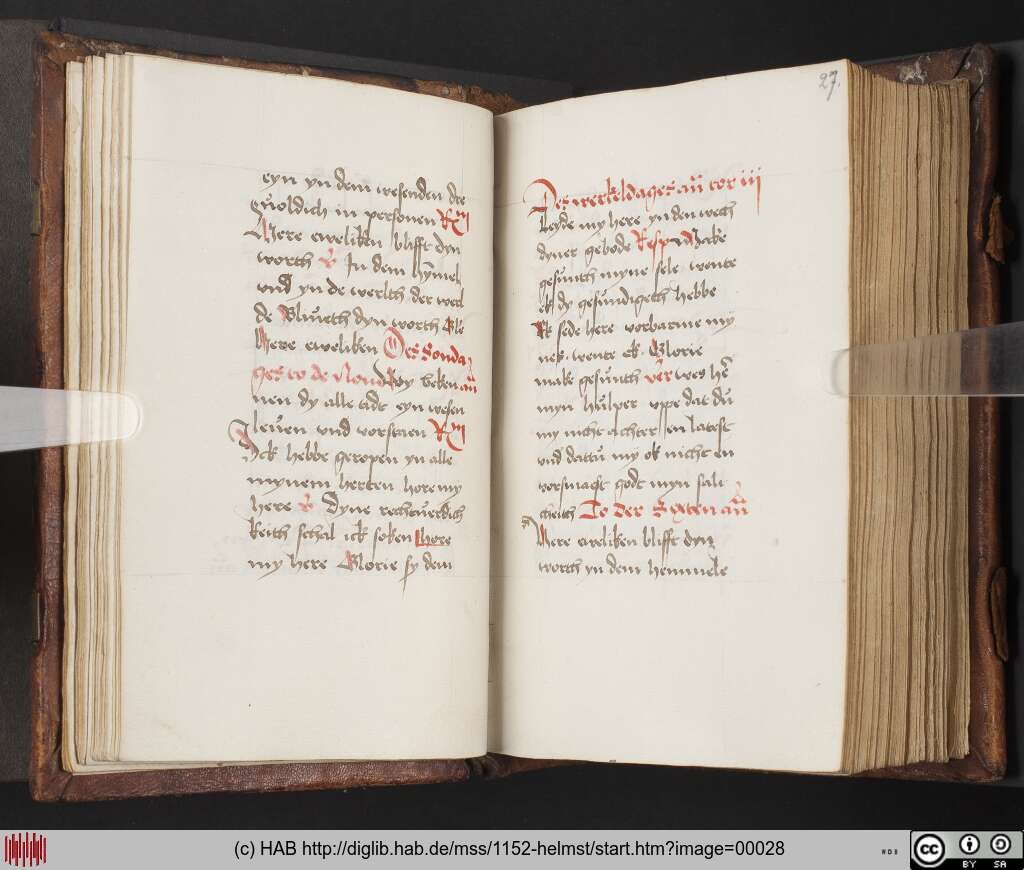 eyn yn dem wesenden dre
uoldich in personen Rm
Here eweliken blifft dyn
worth V In dem hymel
vnd yn de werlth der werl
de Blyueth dyn worth Ble
Here eweliken Des Sonda
ges to de None Wy beken an
nen dy alle tidt eyn wesen
leuen vnd vorstaen Rm
Ick hebbe geropen yn alle
mynem herten hore my
here V Dyne rechtuerdich
keith schal ick soken hore
my here Glorie sy dem
27.
Des werkeldages an tor iij
Leyde my here yn den wech
dyner gebode Resp Make
gesunth myne sele wente
ek dy gesundigeth hebbe
Ik sede here vorbarme my
nek wente ek Glorie
make gesunth ver wes he
myn hulper vppe dat du
my nicht achter en latest
vnd dattu my ok nicht en
vorsmaest godt myn sali
cheith To der Sexten an
Here eweliken blifft dyn
worth yn dem hemmele
(c) HAB http://diglib.hab.de/mss/1152-helmst/start.htm?image=00028
WDB
cc BY SA